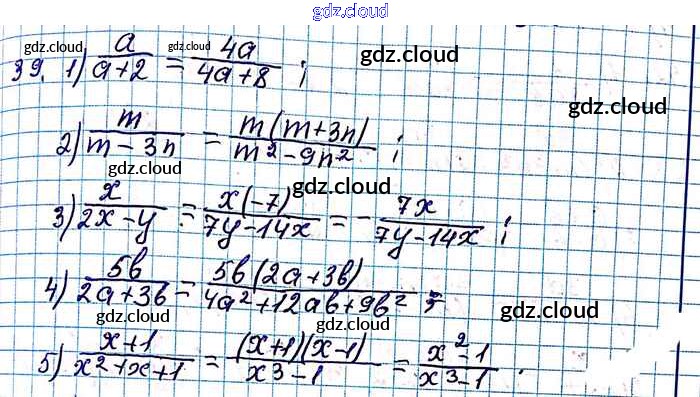 gdz.cloud
gdz.cloud gdz.cloud gdz.cloud
39. 1) a/(a+2) = 4a/(4a+8) ;
gdz.cloud
2) m/(m-3n) = m(m+3n)/(m²-9n²) ;
gdz.cloud gdz.cloud
3) x/(2x-y) = x(-7)/(7y-14x) = -7x/(7y-14x) ;
4) 5b/(2a+3b) = 5b(2a+3b)/(4a²+12ab+9b²) ;
gdz.cloud
gdz.cloud gdz.cloud
5) (x+1)/(x²+x+1) = (x+1)(x-1)/(x³-1) = (x²-1)/(x³-1) .
gdz.cloud